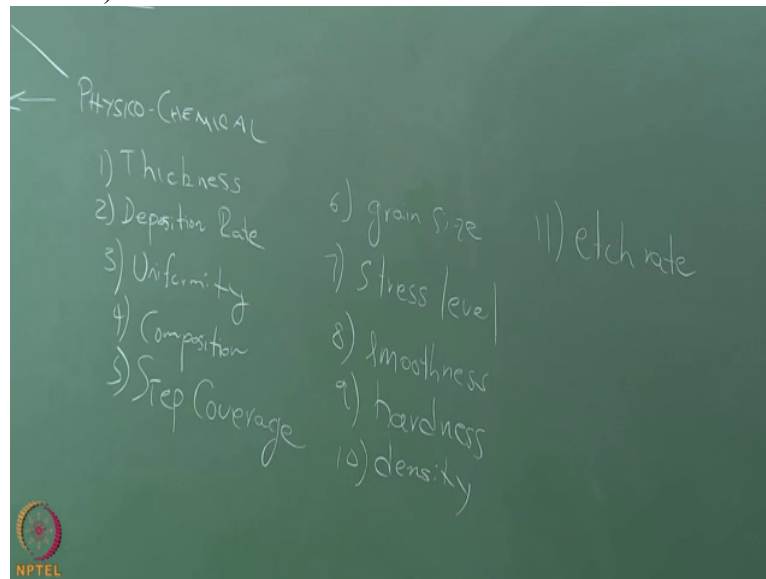 PHYSICO-CHEMICAL
1) Thickness
2) Deposition Rate
3) Uniformity
4) Composition
5) Step Coverage
6) grain size
7) Stress level
8) smoothness
9) hardness
10) density
11) etch rate
NPTEL